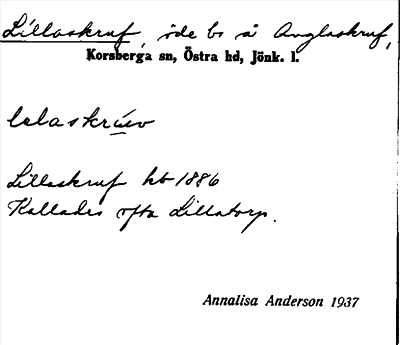 Lillaskruf, öde bs å Anglaskruf,
Korsberga sn, Östra hd, Jönk. l.
lelaskruev
Lillaskruf hb 1886
Kallades ofta Lillatorp.
Annalisa Anderson 1937